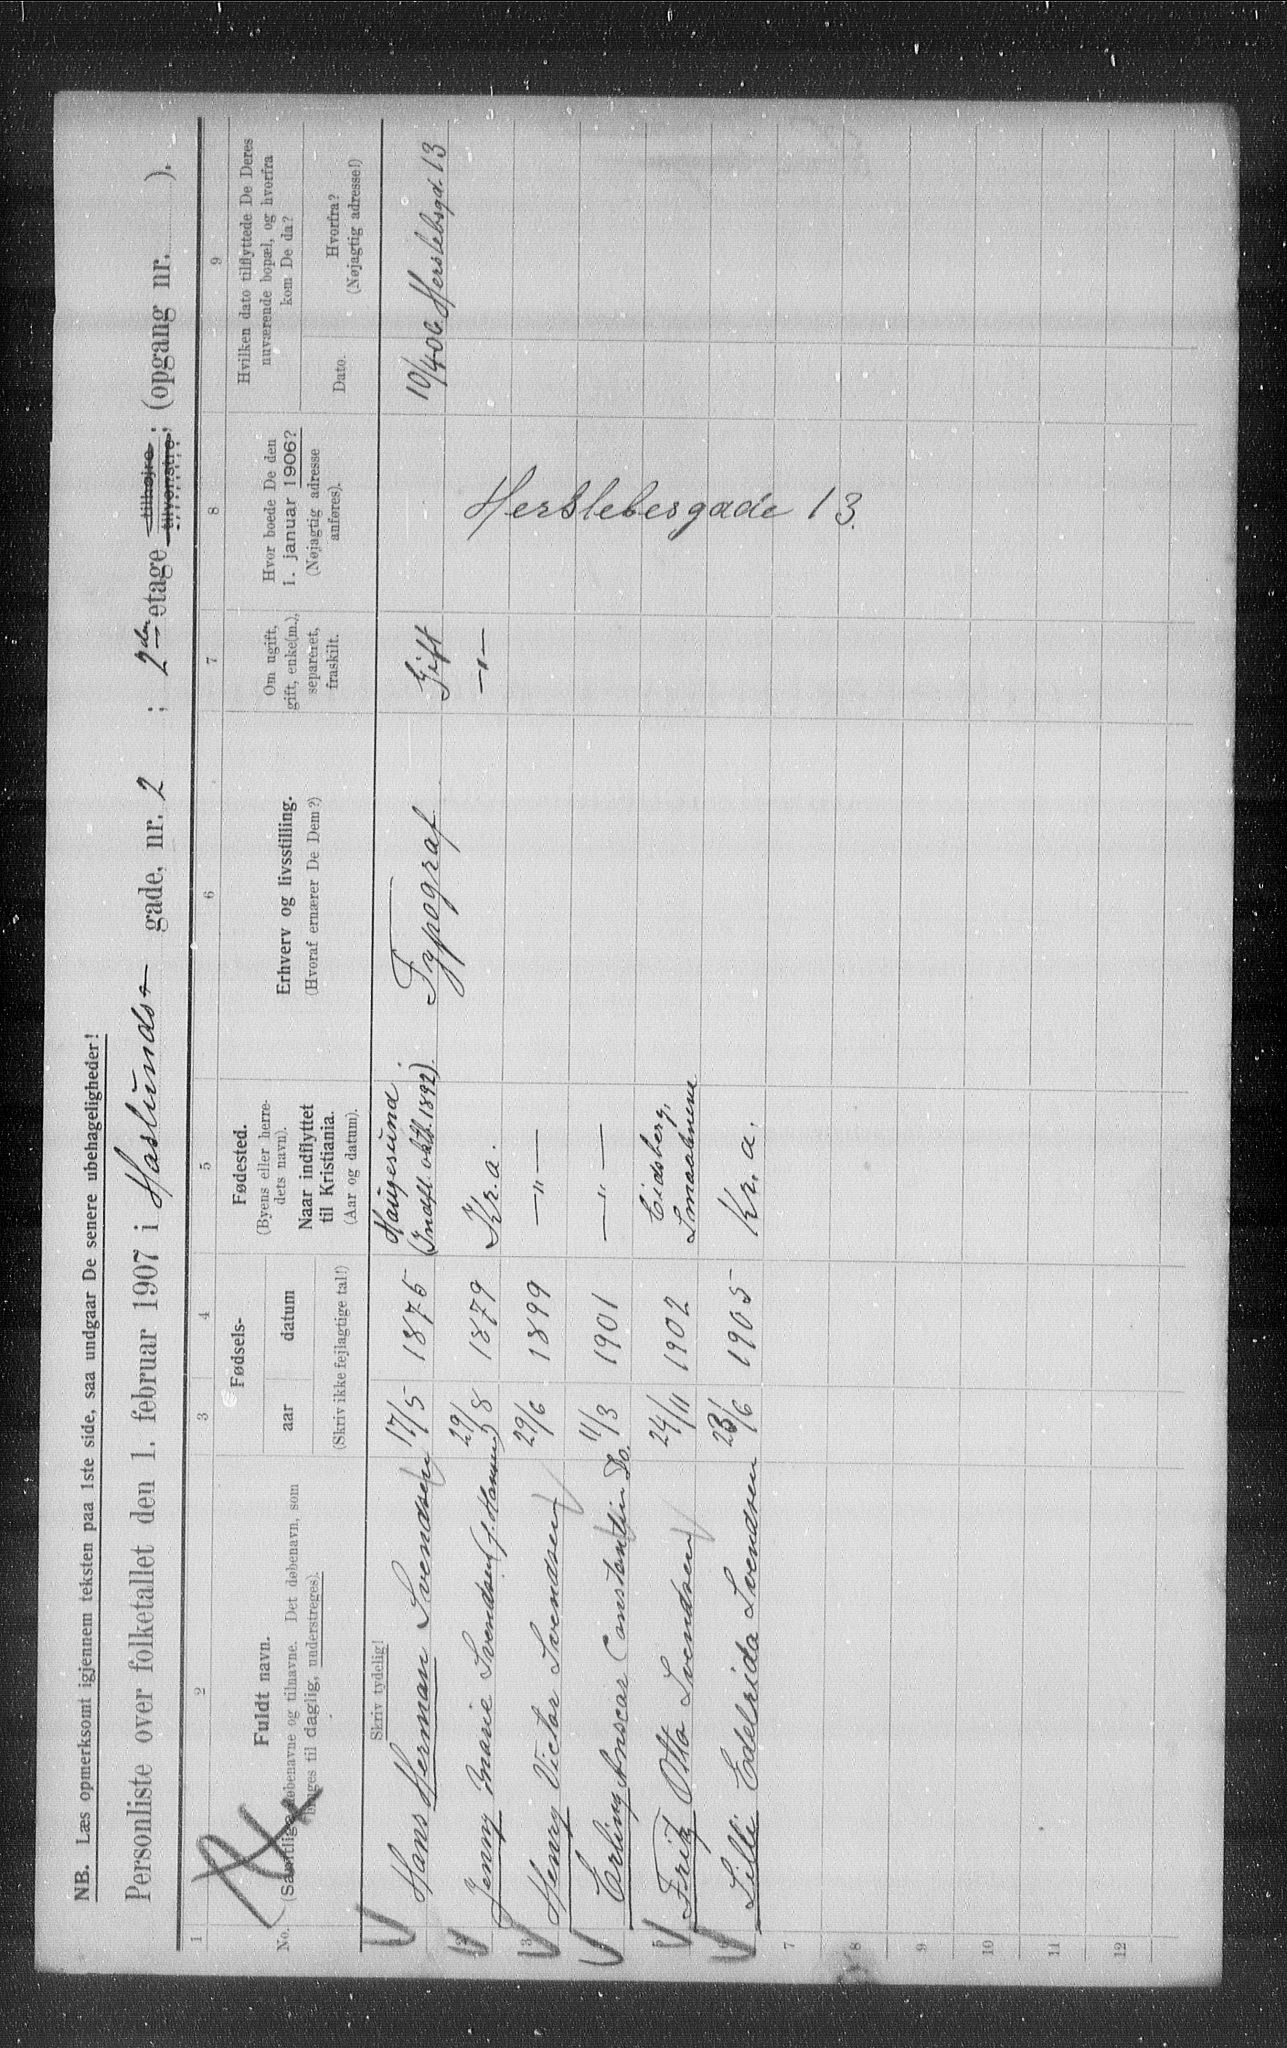 NB. Læs opmerksomt igjennem teksten paa 1ste side, saa undgaar De senere ubehageligheder!
Personliste over folketallet den 1. februar 1907 i Haslunds- gade, nr. 2 ; 2den etage tilhøjre tilvenstre ; (opgang nr. ).
1 2 3 4 5 6 7 8 9
No.
Fuldt navn.
(Samtlige døbenavne og tilnavne. Det døbenavn, som
bruges til daglig, understreges).
Fødsels-
aar datum
(Skriv ikke fejlagtige tal!)
Fødested.
(Byens eller herre-
dets navn).
Naar indflyttet
til Kristiania.
(Aar og datum).
Erhverv og livsstilling.
(Hvoraf ernærer De Dem?)
Om ugift,
gift, enke(m.),
separeret,
fraskilt.
Hvor boede De den
1. januar 1906?
(Nøjagtig adresse
anføres).
Hvilken dato tilflyttede De Deres
nuværende bopæl, og hvorfra
kom De da?
Dato.
Hvorfra?
(Nøjagtig adresse!)
Skriv tydelig!
Hans Herman Svendsen 17/5 1875 Haugesund (Indfl. oktb. 1892). Typograf Gift 10/4 06 Herslebsgd. 13
2 Jenny Marie Svendsen (f. Hansen) 29/8 1879 Kr.a. —"—
Herslebesgade 13.
3 Henry Victor Svendsen 29/6 1899 —"—
Erling Anscar Constantin Do. 11/3 1901 —"—
5 Fritz Otto Svendsen 24/11 1902 Eidsberg, Smaalenene
6 Lilli Edelrida Svendsen 23/6 1905 Kr. a.
7
8
9
10
11
12